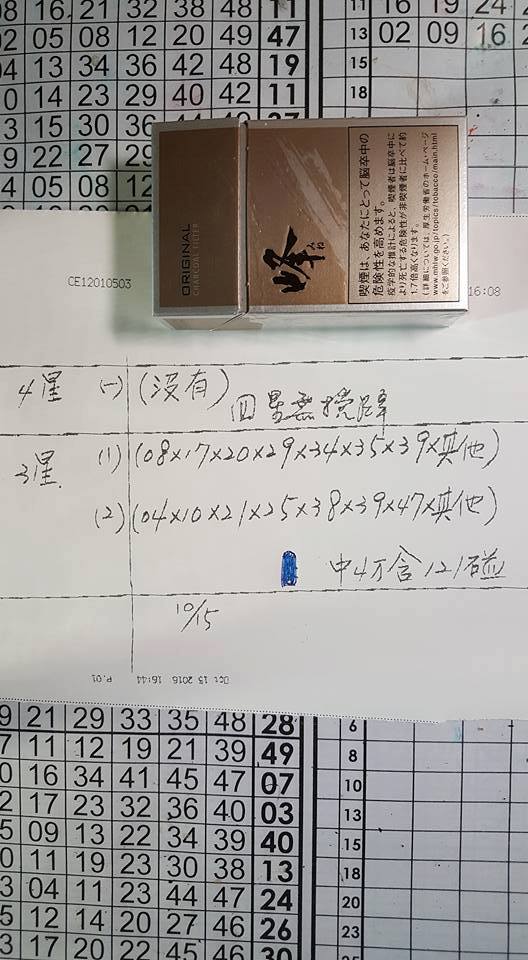 08 16 21 32 38 48 11
02 05 08 12 20 49 47
04 13 34 36 42 48 19
0 14 23 29 40 42 11
3 15 30 36
9 22 27 29
4 05 08 12
11 16 19 24
13 02 09 16 2
15
18
ORIGINAL
CHARCOAL FILTER
峰
みね
喫煙は、あなたにとって脳卒中の
危険性を高めます。
疫学的な推計によると、喫煙者は脳卒中に
より死亡する危険性が非喫煙者に比べて約
1.7倍高くなります。
(詳細については、厚生労働省のホーム・ページ
www.mhlw.go.jp/topics/tobacco/main.html
をご参照ください。)
CE12010503
16:08
4星 (一) (沒有)
四星無攪蹕
3星 (1) (08×17×20×29×34×35×39×其他)
(2) (04×10×21×25×38×39×47×其他)
中4万含121碰
10/15
Oct 15 2016 16:44 P.01
9 21 29 33 35 48 28
7 11 12 19 21 39 49
0 16 34 41 45 47 07
2 17 23 32 36 40 03
5 09 13 22 34 39 40
0 11 19 23 30 38 13
3 04 11 23 44 47 24
5 12 14 20 27 46 26
3 17 20 22 45 46 30
6
8
10
13
15
18
20
23